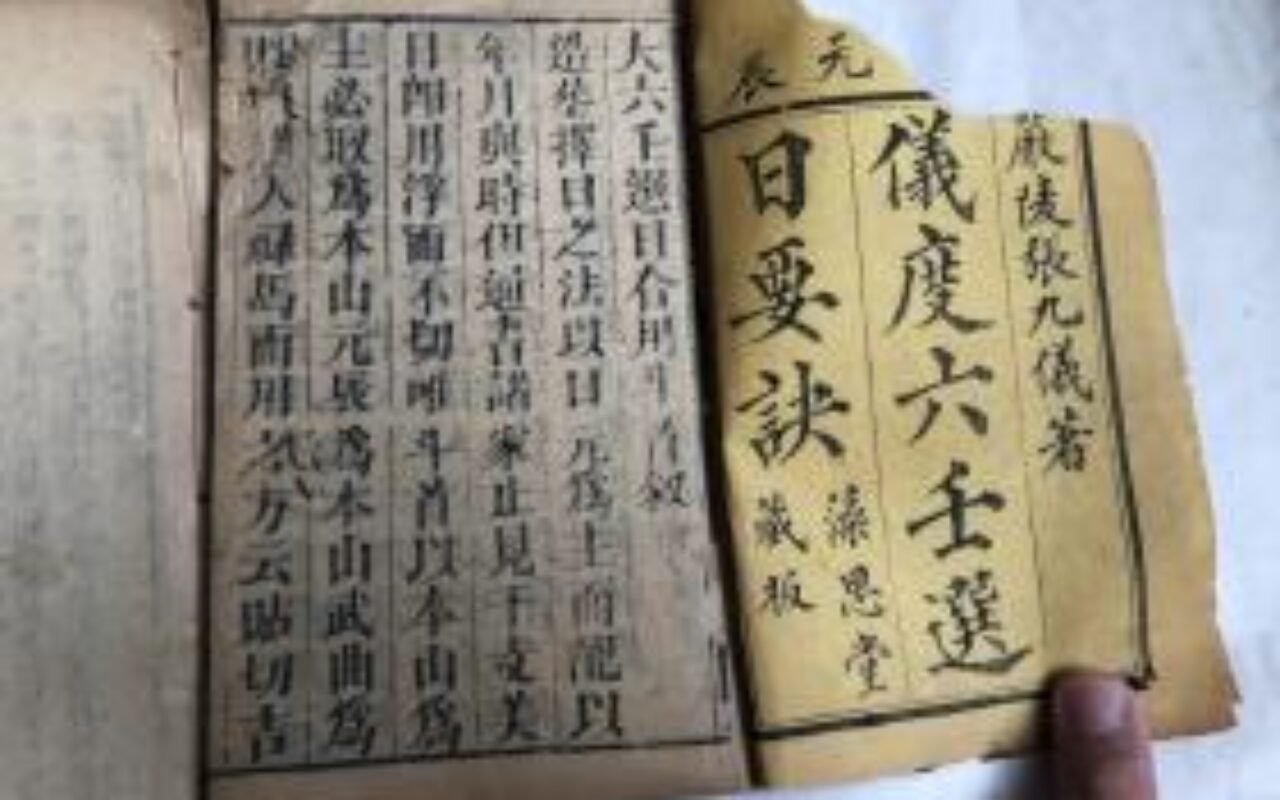 元辰
嚴陵張九儀著
儀度六壬選
日要訣
藻思堂
藏板
大六壬選日合用斗首叙
造塟擇日之法以日
為主而配以
年月與時但通書諸家止見干支美
日即用浮面不切唯斗首以本山為
主必取為本山元辰為本山武曲為
人祿馬而用
方云貼切吉